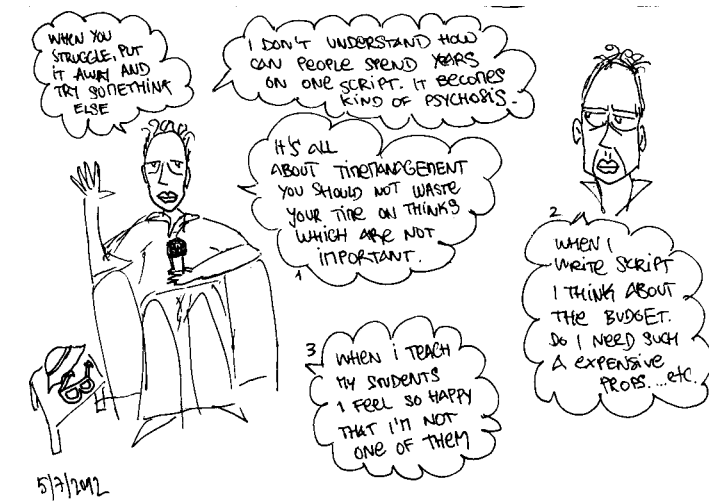 WHEN YOU
STRUGGLE, PUT
IT AWAY AND
TRY SOMETHINK
ELSE
I DON'T UNDERSTAND HOW
CAN PEOPLE SPEND YEARS
ON ONE SCRIPT. IT BECOMES
KIND OF PSYCHOSIS.
IT'S ALL
ABOUT TIMEMANAGEMENT
YOU SHOULD NOT WASTE
YOUR TIME ON THINKS
WHICH ARE NOT
IMPORTANT.
1
2
WHEN I
WRITE SCRIPT
I THINK ABOUT
THE BUDGET.
DO I NEED SUCH
A EXPENSIVE
PROPS....etc.
3
WHEN I TEACH
MY STUDENTS
I FEEL SO HAPPY
THAT I'M NOT
ONE OF THEM
5/7/2012